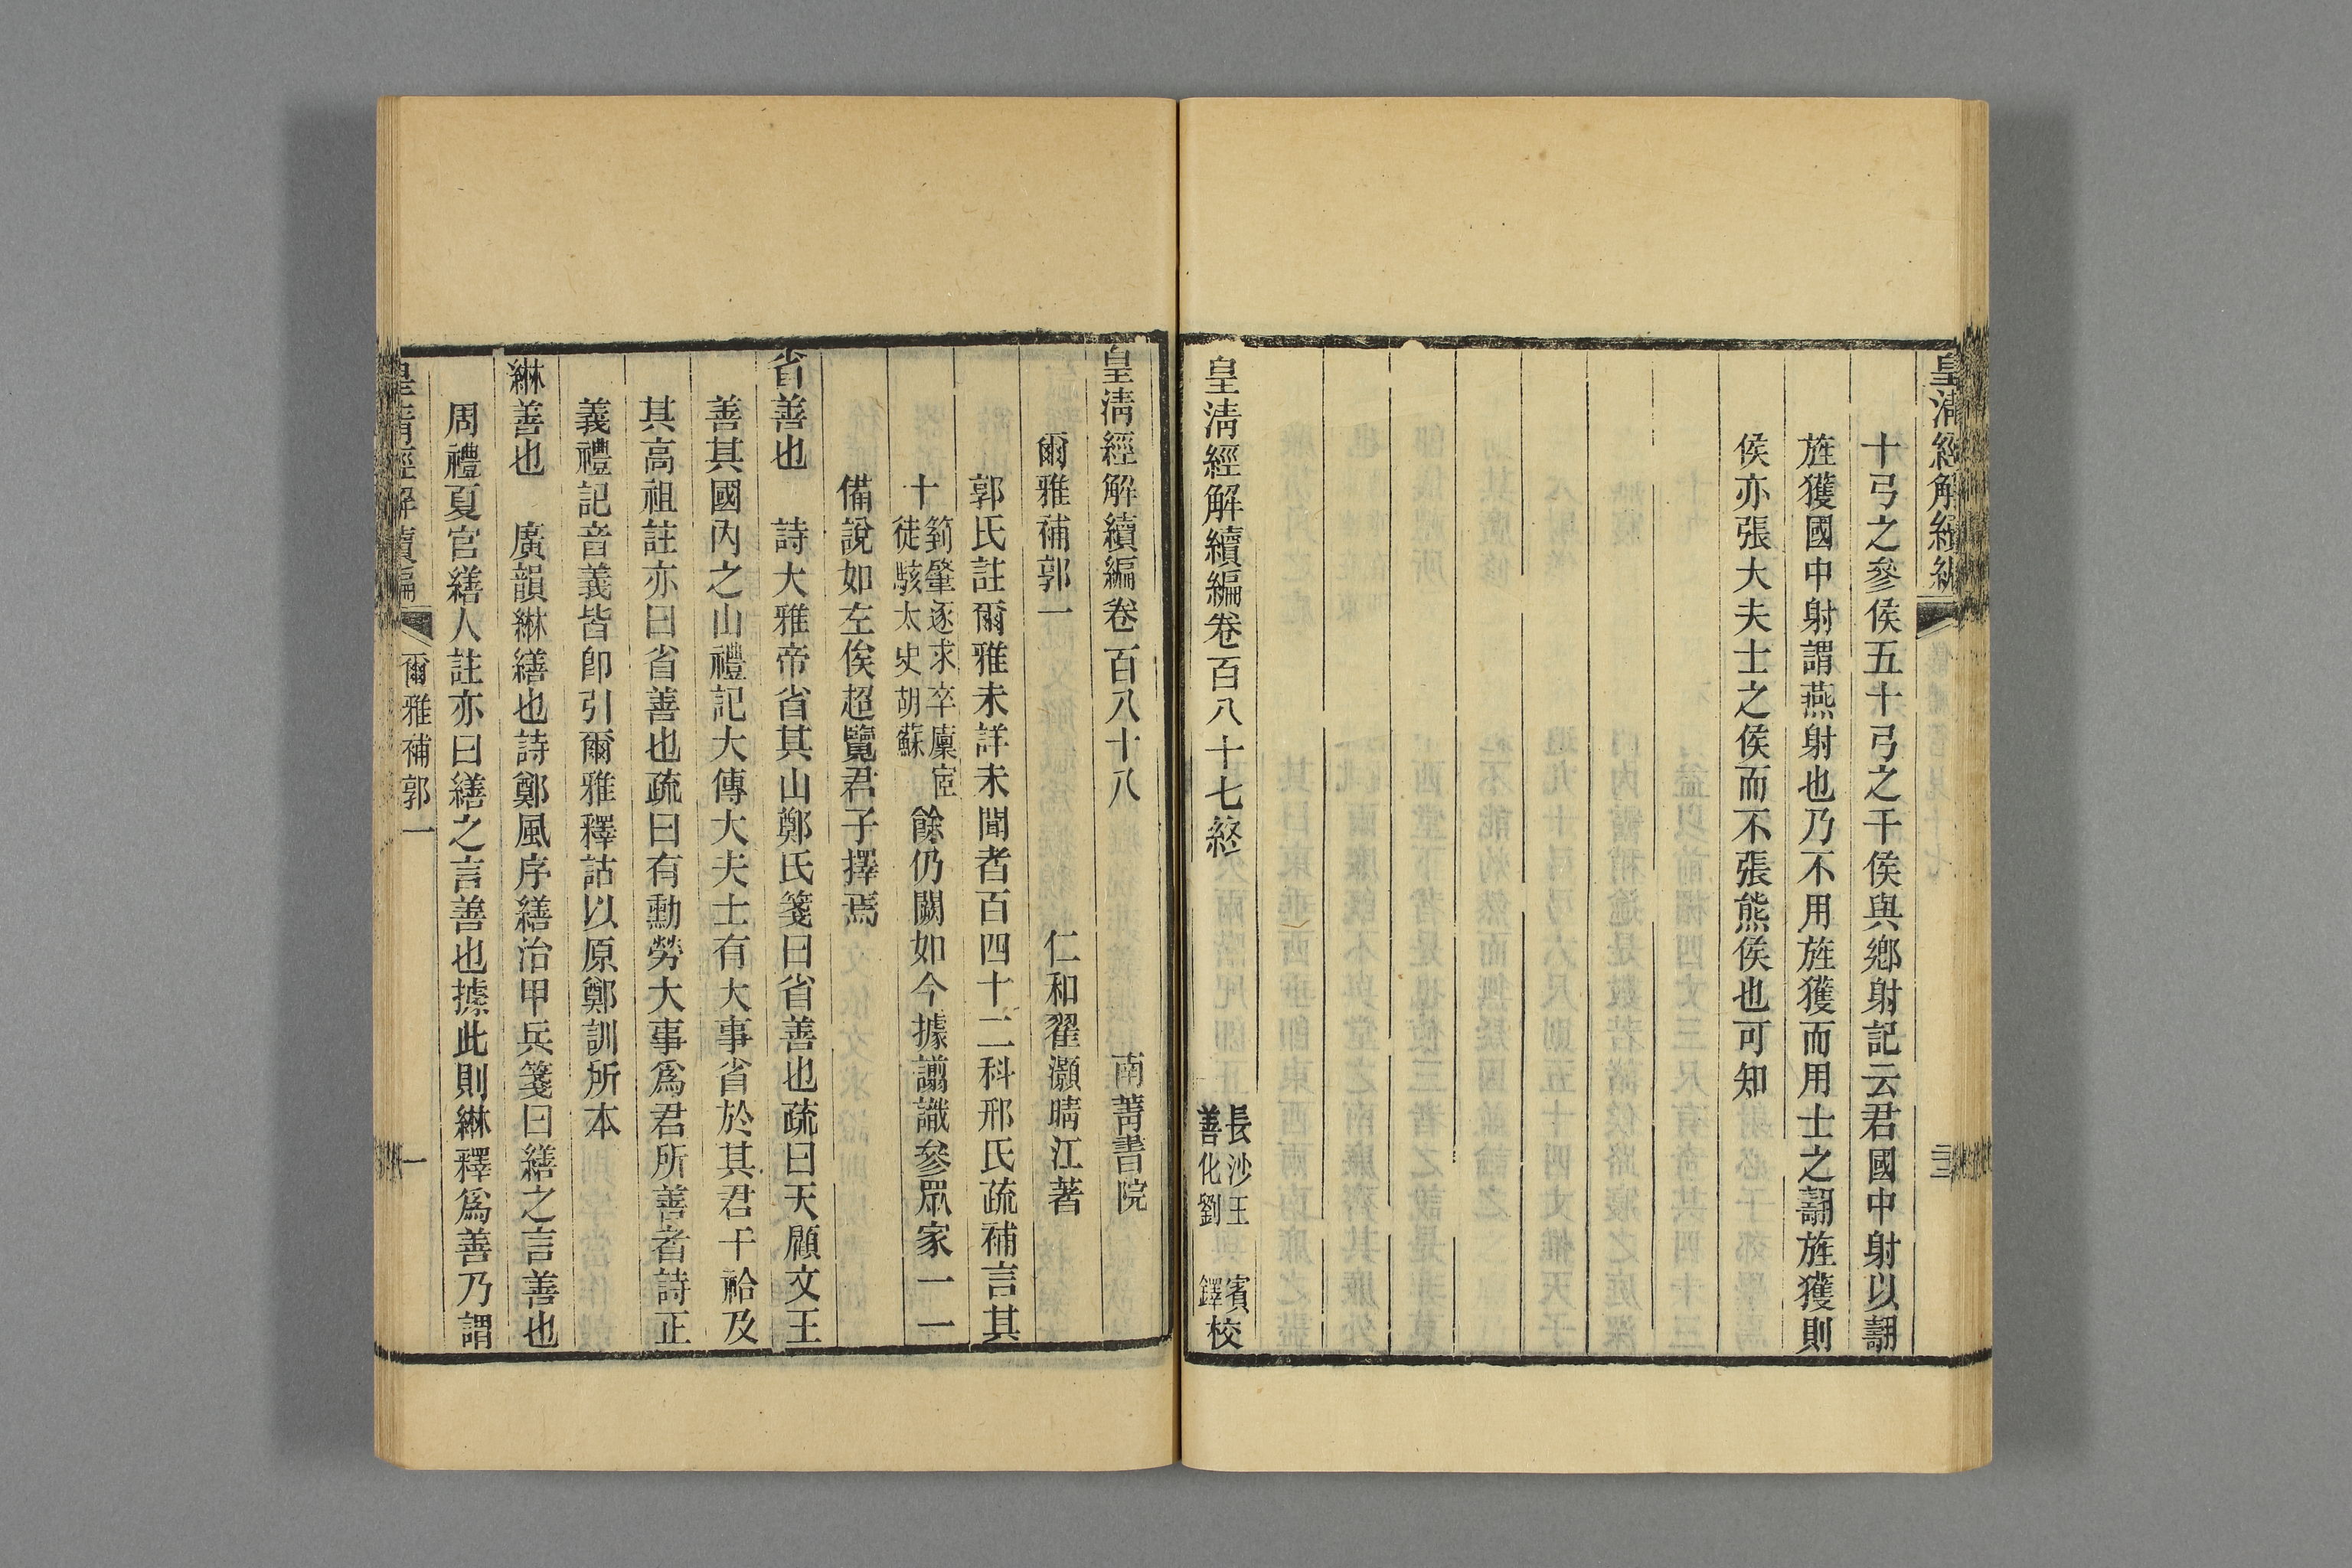 皇清經解續編
三
十弓之參侯五十弓之干侯與鄉射記云君國中射以翿
旌獲國中射謂燕射也乃不用旌獲而用士之翿旌獲則
侯亦張大夫士之侯而不張熊侯也可知
皇清經解續編卷百八十七終
長沙王 賓
善化劉 鐸校
皇清經解續編卷百八十八
南菁書院
爾雅補郭一
仁和翟灝晴江著
郭氏註爾雅未詳未聞者百四十二科邢氏疏補言其
十
箌肇逐求卒廩宧
徒駭太史胡蘇
餘仍闕如今據譾識參眾家一一
備說如左俟超覽君子擇焉
省善也 詩大雅帝省其山鄭氏箋曰省善也疏曰天顧文王
善其國內之山禮記大傳大夫士有大事省於其君干祫及
其高祖註亦曰省善也疏曰有勳勞大事爲君所善者詩正
義禮記音義皆卽引爾雅釋詁以原鄭訓所本
綝善也 廣韻綝繕也詩鄭風序繕治甲兵箋曰繕之言善也
周禮夏官繕人註亦曰繕之言善也據此則綝釋爲善乃謂
皇清經解續編
爾雅補郭一
一